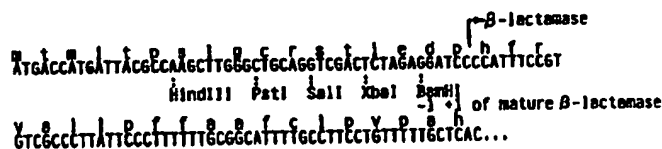 β-lactamase
m t m i t p s l g c r s t l e d p h f r
ATGACCATGATTACGCCAAGCTTGGGCTGCAGGTCGACTCTAGAGGATCCCCATTTCCGT
HindIII PstI SalI XbaI BamHI
-1 +1 of mature β-lactamase
v a l i p f f a a f c l p v f a h
GTCGCCCTTATTCCCTTTTTTGCGGCATTTTGCCTTCCTGTTTTTGCTCAC...